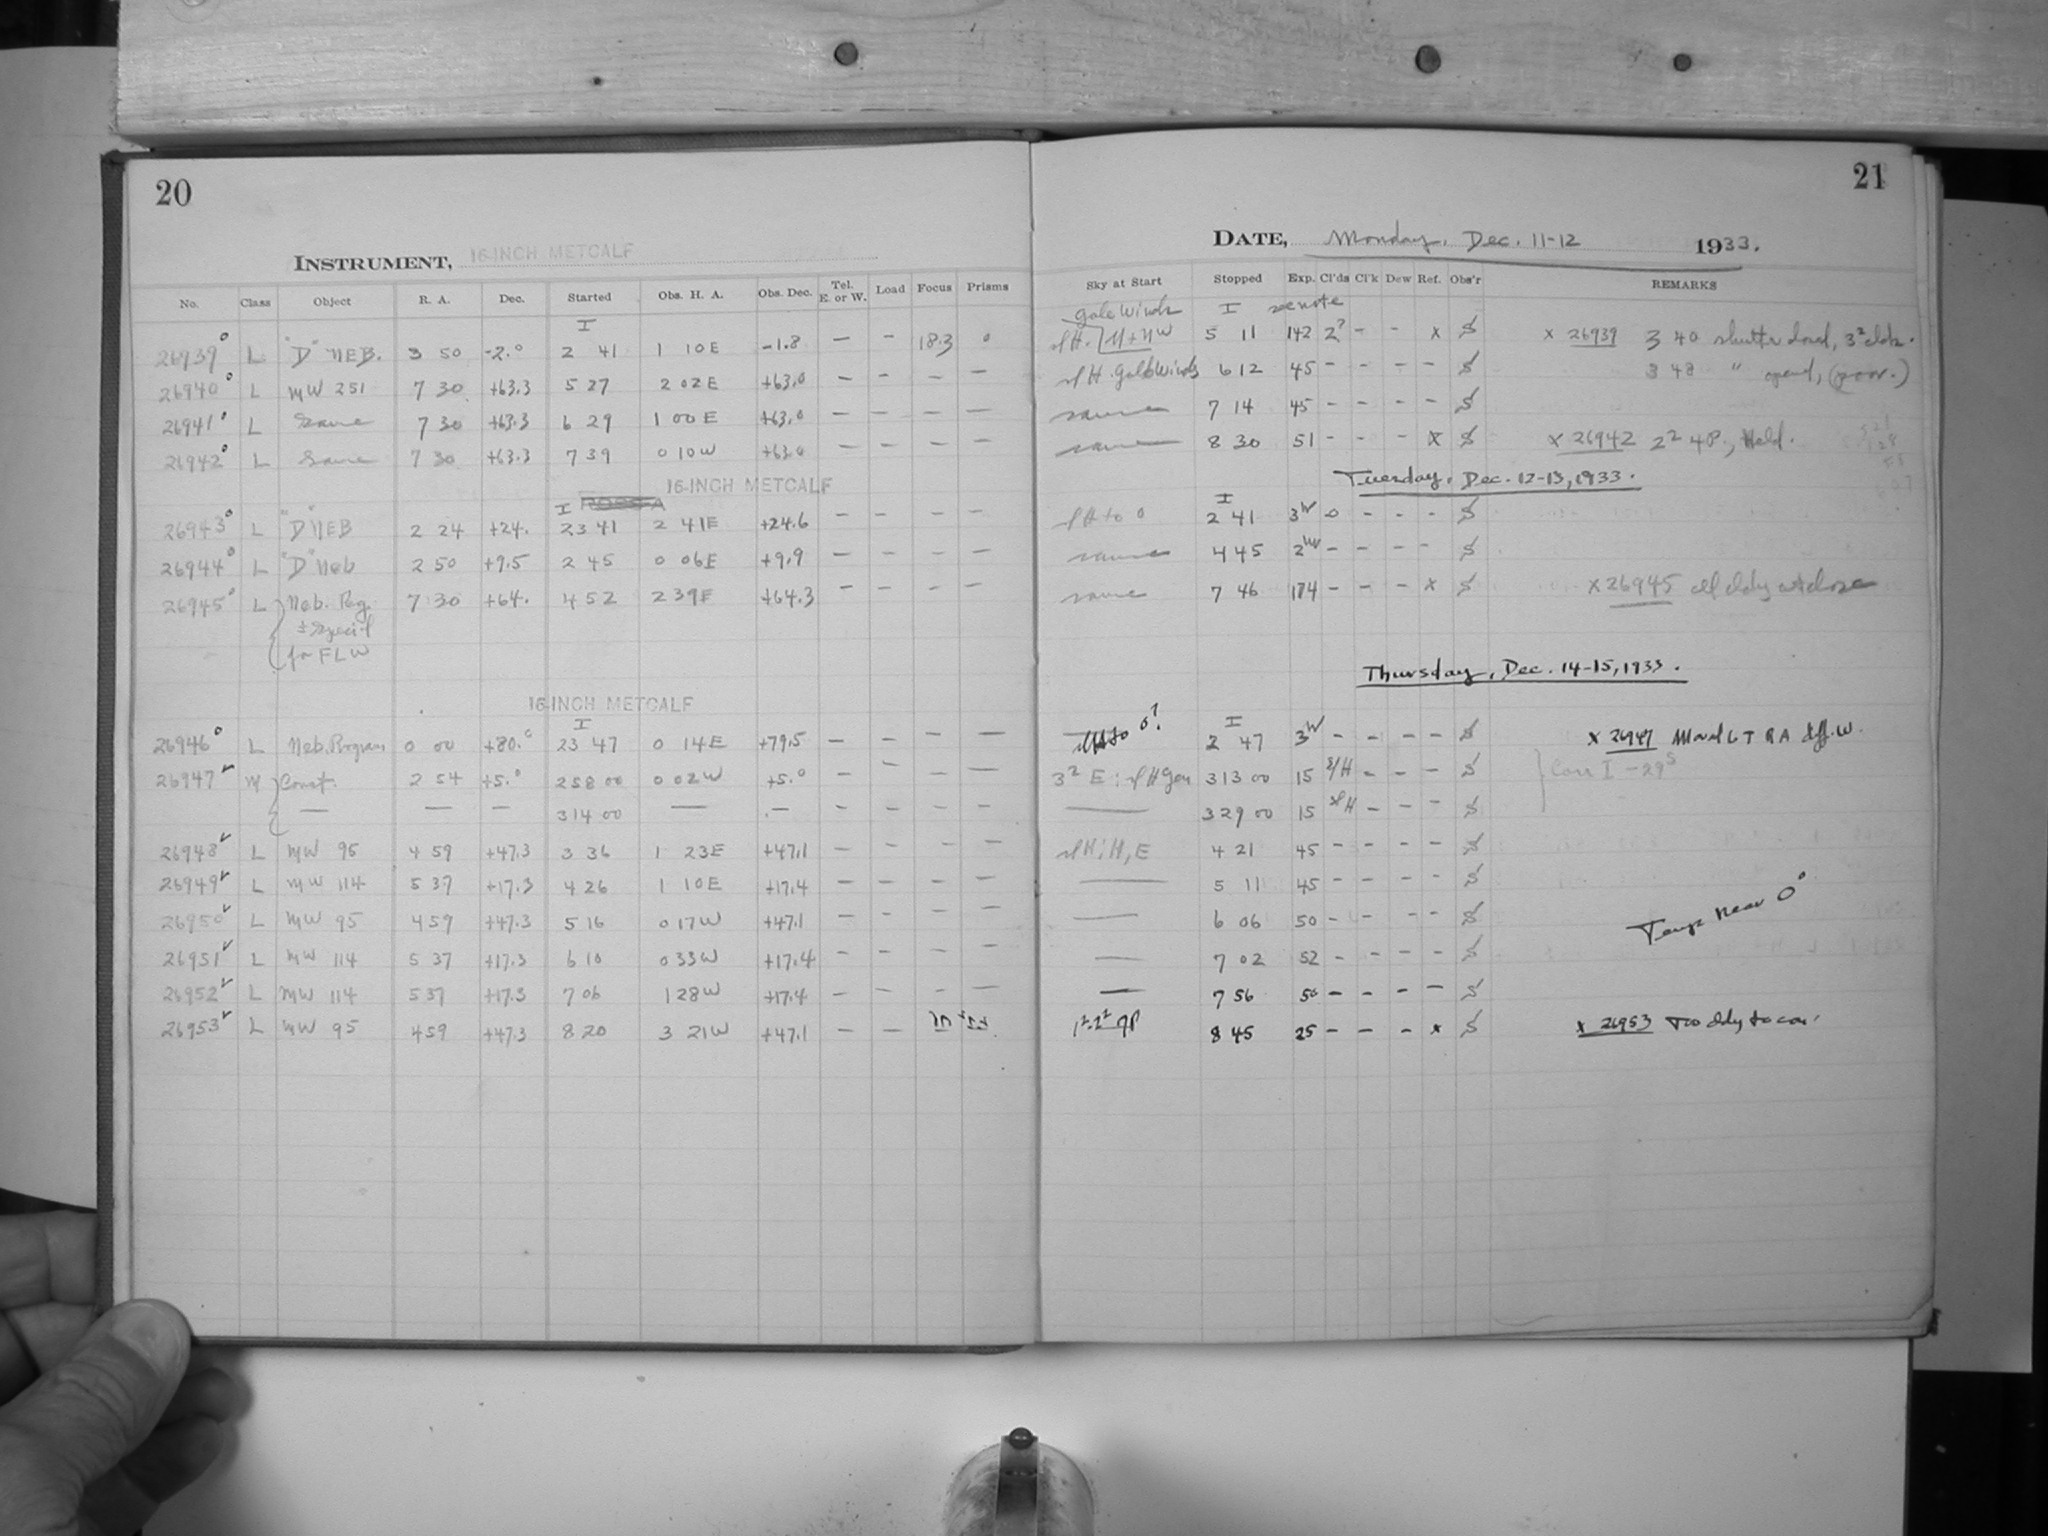 20
INSTRUMENT, 16-INCH METCALF
No. Class Object R. A. Dec. Started Obs. H. A. Obs. Dec. Tel. E. or W. Load Focus Prisms
I
26939° L "D" NEB. 3 50 -2.° 2 41 1 10E -1.8 — - 18.3 °
26940° L MW 251 7 30 +63.3 5 27 2 02E +63.0 — - — —
26941° L Same 7 30 +63.3 6 29 1 00E +63.0 — - — —
26942° L Same 7 30 +63.3 7 39 0 10W +63.0 — — — —
16-INCH METCALF
I
26943° L "D" NEB 2 24 +24. 23 41 2 41E +24.6 — — — —
26944° L "D" Neb 2 50 +9.5 2 45 0 06E +9.9 — — — —
26945° L Neb. Reg. 7 30 +64. 4 52 2 39E +64.3 — - - —
± Special
for FLW
16-INCH METCALF
I
26946° L Neb. Program 0 00 +80.° 23 47 0 14E +79.5 — — — —
26947 M Const. 2 54 +5.° 2 58 00 0 02W +5.° - — - —
— — — 3 14 00 — - - - - -
26948 L MW 95 4 59 +47.3 3 36 1 23E +47.1 — — — —
26949 L MW 114 5 37 +17.3 4 26 1 10E +17.4 — — — —
26950 L MW 95 4 59 +47.3 5 16 0 17W +47.1 — — — —
26951 L MW 114 5 37 +17.3 6 10 0 33W +17.4 — — — —
26952 L MW 114 5 37 +17.3 7 06 1 28W +17.4 — — - —
26953 L MW 95 4 59 +47.3 8 20 3 21W +47.1 — —
21
DATE, Monday, Dec. 11-12 1933.
Sky at Start Stopped Exp. Cl'ds Cl'k Dew Ref. Obs'r REMARKS
Gale Winds I see note
slH. N+NW 5 11 142 2? - - x S x 26939 3 40 shutter closed, 3² cldr.
slH. Gale Winds 6 12 45 - - - - S 3 48 " opened, (poor.)
same 7 14 45 - - - - S
same 8 30 51 - - - x S x 26942 2² 4P., Held.
Tuesday, Dec. 12-13, 1933.
I
slH to 0 2 41 3W - - - - S
same 4 45 2 - - - - S
same 7 46 174 - - - x S x 26945 all cldy at close
Thursday, Dec. 14-15, 1933.
slH to 0? I
2 47 3W - - - - S x 26947 Moved L T R A diff. W.
3² E; slH Gen 3 13 00 15 slH - - - S Corr I -29s
— 3 29 00 15 slH - - - S
slH; H, E 4 21 45 - - - - S
— 5 11 45 - - - - S
— 6 06 50 - - - - S
Temp near 0°
— 7 02 52 - - - - S
— 7 56 50 - - - - S
1²-2² 9P 8 45 25 - - - x S x 26953 Too cldy to con.